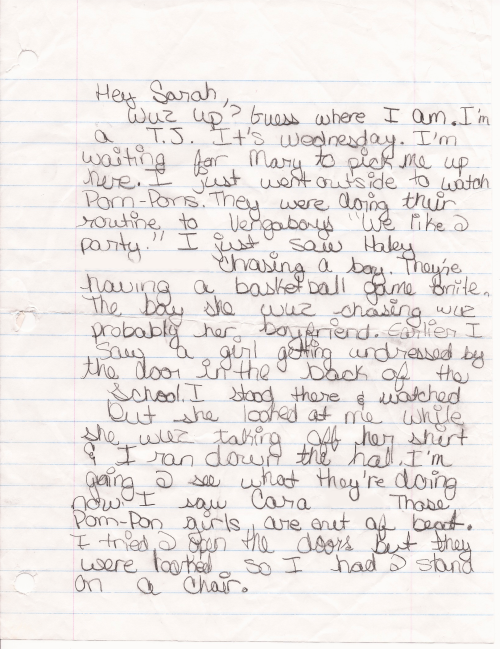 Hey Sarah,
Wuz up? Guess where I am. I'm
a T.J. It's wednesday. I'm
waiting for Mary to pick me up
here. I just went outside to watch
Pom-Pons. They were doing their
routine to Vengaboys "We like 2
party." I just saw Haley
chasing a boy. They're
having a basketball game tonite.
The boy she wuz chasing wuz
probably her boyfriend. Earlier I
Saw a girl getting undressed by
the door in the back of the
School. I stood there & watched
but she looked at me while
she wuz taking off her shirt
& I ran down the hall. I'm
going 2 see what they're doing
now. I saw Cara Those
Pom-Pon girls are out of beat.
I tried 2 open the doors but they
were locked so I had 2 stand
on a chair.